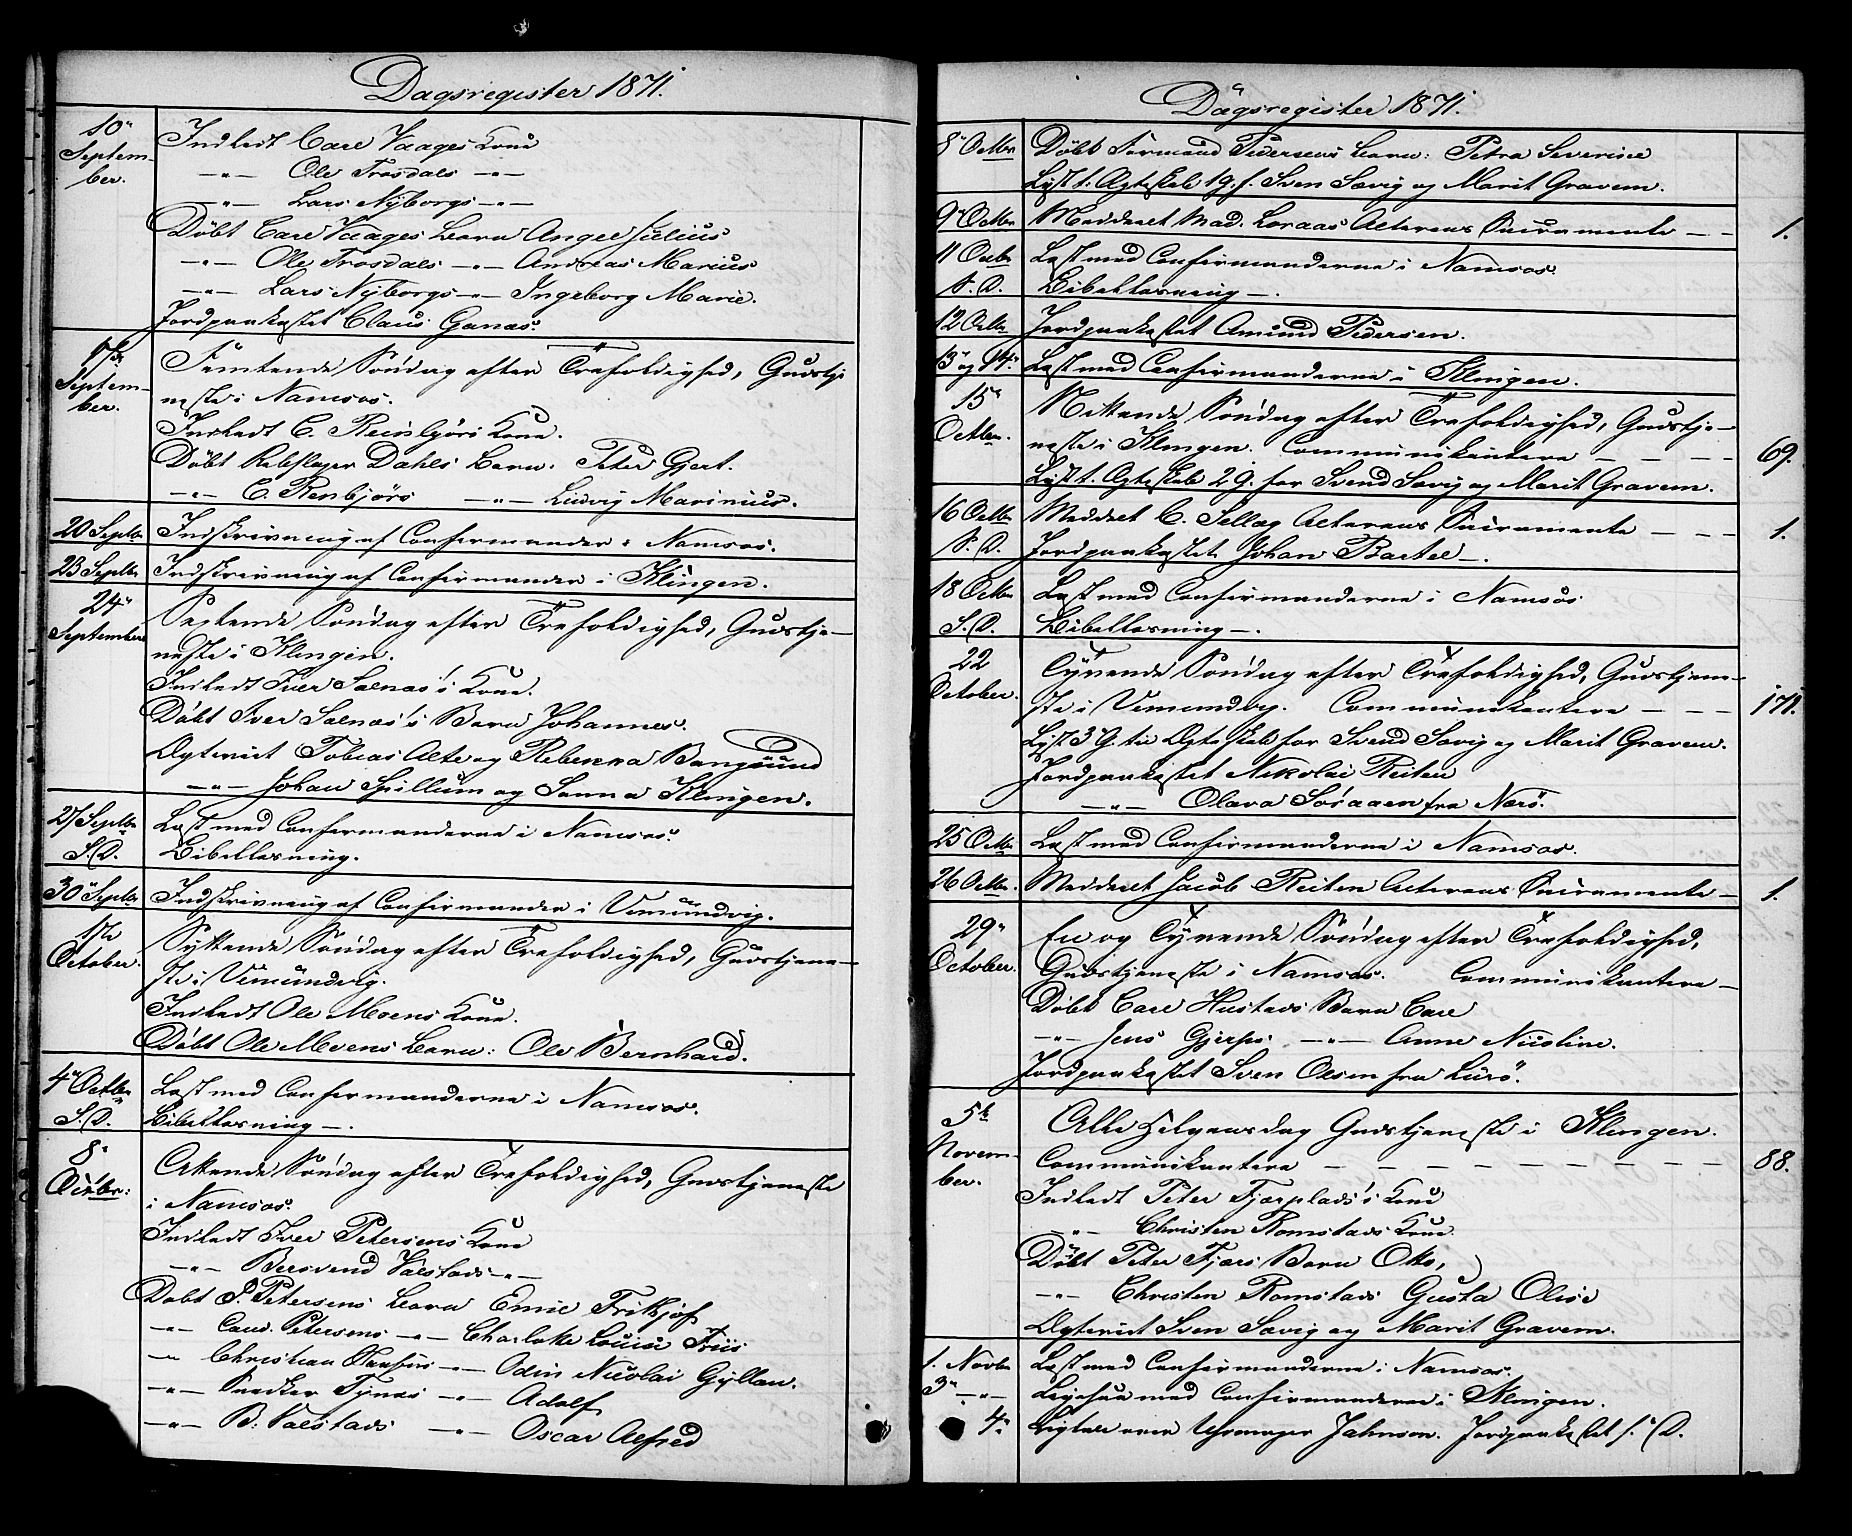 Dagsregister 1871.
10de September.
Indledt Carl Vaages Kone
—"— Ole Trosdals —"—
—"— Lars Nyborgs —"—
Döbt Carl Vaages Barn Angel Julius
—"— Ole Trosdals —"— Andreas Marius
—"— Lars Nyborgs —"— Ingeborg Marie.
Jordpaakastet Claus Ganas.
17de September.
Femtende Söndag efter Trefoldighed, Gudstje
neste i Namsos.
Indledt C. Reinbjörs Kone.
Döbt Rebslager Dahls Barn: Peter Gjert.
—"— C. Renbjörs —"— Ludvig Marinius.
20 Septbr Indskrivning af Confirmander i Namsos.
23 Septbr Indskrivning af Confirmander i Klingen.
24de September
Sextende Söndag efter Trefoldighed, Gudstje—
neste i Klingen.
Indledt Iver Salnas's Kone.
Döbt Iver Salnas's Barn Johannes.
Ægteviet Tobias Alte og Rebekka Bangsund
—"— Johan Spillum og Sanna Klingen.
27 Septbr Læst med Confirmanderne i Namsos.
S. D. Bibellæsning.
30 Septbr Indskrivning af Confirmander i Vemundvig.
1ste October.
Syttende Söndag efter Trefoldighed, Gudstjene—
ste i Vemundvig.
Indledt Ole Moens Kone.
Döbt Ole Moens Barn: Ole Bernhard.
4 Octbr Læst med Confirmanderne i Namsos.
S. D. Bibellæsning —.
8de Octbr:
Attende Söndag efter Trefoldighed, Gudstjeneste
i Namsos.
Indledt Iver Petersens Kone
—"— Bersvend Valstads —"—
Döbt P. Petersens Barn Emil Fritjof
—"— Cand. Petersens —"— Charlotte Louise Friis
—"— Christian Hansens —"— Odin Nicolai Gyllan.
—"— Snedker Tynæs —"— Adolf
—"— B. Valstads —"— Oscar Alfred
Dagsregister 1871.
8 Octbr Döbt Formand Pedersens Barn: Petra Severine
Lyst t. Ægteskab 1 g. f. Sven Sævig og Marit Gravem.
9 Octbr Meddeelt Mad. Loraas Alterens Sacramente — — 1.
11 Octbr Læst med Confirmanderne i Namsos.
S. D. Bibellæsning —.
12 Octbr Jordpaakastet Amund Pedersen.
13 og 14 Læst med Confirmanderne i Klingen.
15 Octbr.
Nittende Söndag efter Trefoldighed, Gudstje—
neste i Klingen. Communikantere — — — — 69.
Lyst t. Ægteskab 2 g. for Svend Sævig og Marit Gravem.
16 Octbr Meddeelt C. Sellæg Alterens Sacramente — — — 1.
S. D. Jordpaakastet Johan Bartel —.
18 Octbr Læst med Confirmanderne i Namsos
S. D. Bibellæsning —.
22 October.
Tyvende Söndag efter Trefoldighed, Gudstjene—
ste i Vemundvg. Communikantere — — — 171.
Lyst 3 G. til Ægteskab for Svend Sævig og Marit Gravem.
Jordpaakastet Nikolai Reiten
—"— Olava Söraaen fra Nærö.
25 Octbr Læst med Confirmanderne i Namsos.
26 Octbr. Meddeelt Jacob Reiten Alterens Sacramente — 1.
29 October.
En og Tyvende Söndag efter Trefoldighed,
Gudstjeneste i Namsos. Communikantere —
Döbt Carl Hustads Barn Carl
—"— Jens Gjerps —"— Anne Nicoline.
Jordpaakastet Sven Olsen fra Lurö.
5te November.
Alle Helgensdag Gudstjeneste i Klingen.
Communikantere — — — — — — — — 88.
Indledt Peter Fjærplads's Kone
—"— Christen Romstads Kone.
Döbt Peter Fjærs Barn Otto,
—"— Christen Romstads Gusta Olise
Ægteviet Sven Sævig og Marit Gravem.
1. Novbr Læst med Confirmanderne i Namsos.
3 —"— Ligesaa med Confirmanderne i Klingen.
4 Ligtale over Uhrmager Jahnson. Jordpaakastet s. D.